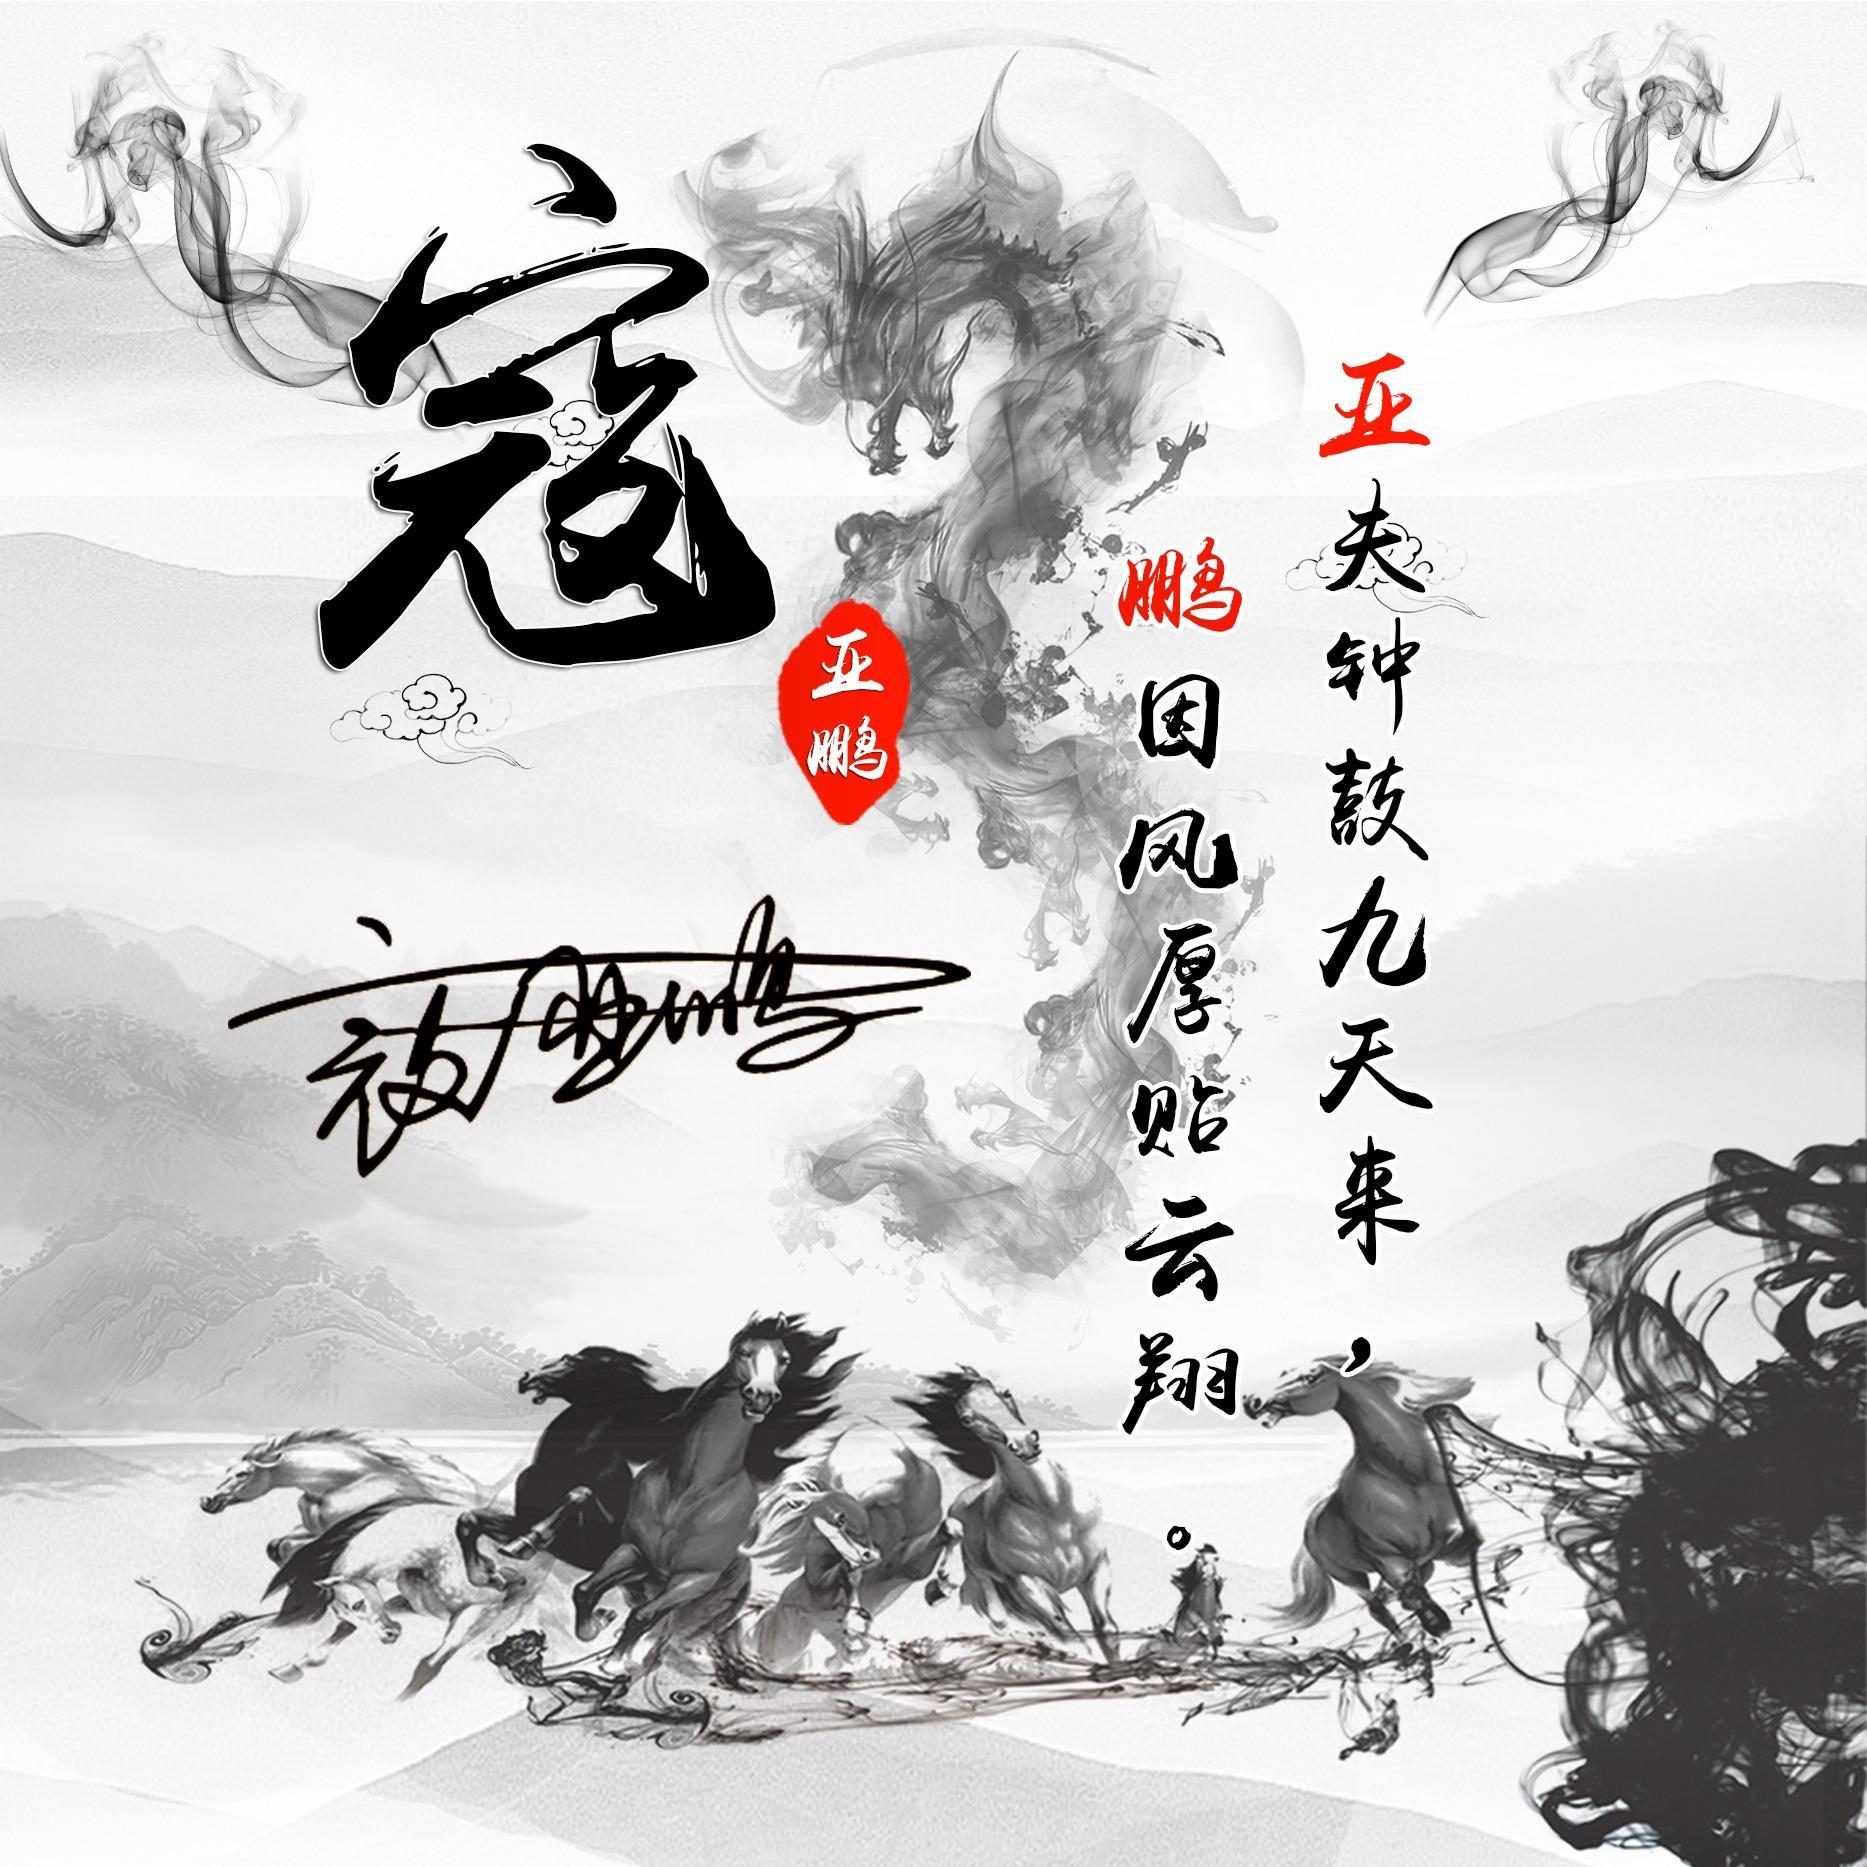 寇
亚
鹏
寇亚鹏
亚夫钟鼓九天来，
鹏因风厚贴云翔。